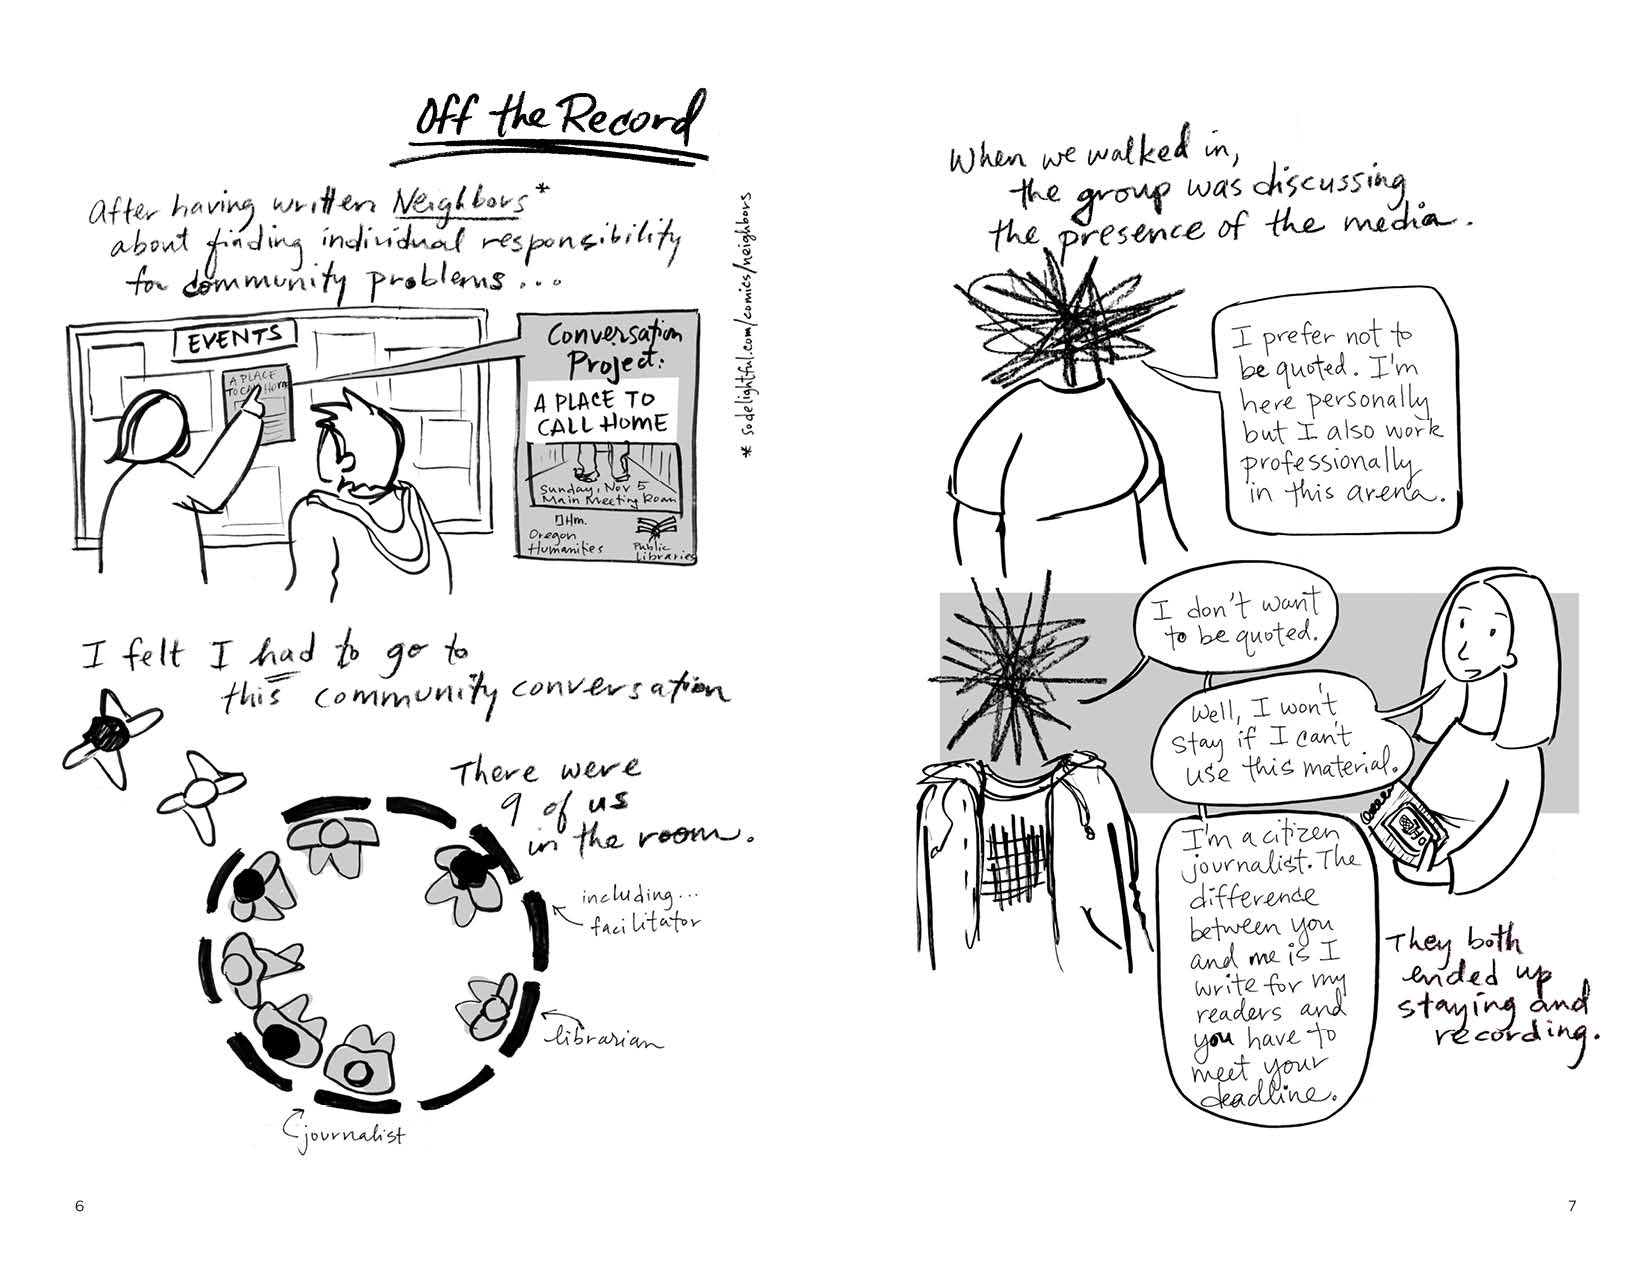 Off the Record
After having written Neighbors*
about finding individual responsibility
for community problems...
* sodelightful.com/comics/neighbors
EVENTS
A PLACE
TO CALL HOME
Conversation
Project:
A PLACE TO
CALL HOME
Sunday, Nov 5
Main Meeting Room
Hm.
Oregon
Humanities
Public
Libraries
I felt I had to go to
this community conversation
There were
9 of us
in the room.
including...
facilitator
librarian
journalist
6
When we walked in,
the group was discussing
the presence of the media.
I prefer not to
be quoted. I'm
here personally
but I also work
professionally
in this arena.
I don't want
to be quoted.
Well, I won't
stay if I can't
use this material.
I'm a citizen
journalist. The
difference
between you
and me is I
write for my
readers and
you have to
meet your
deadline.
They both
ended up
staying and
recording.
7